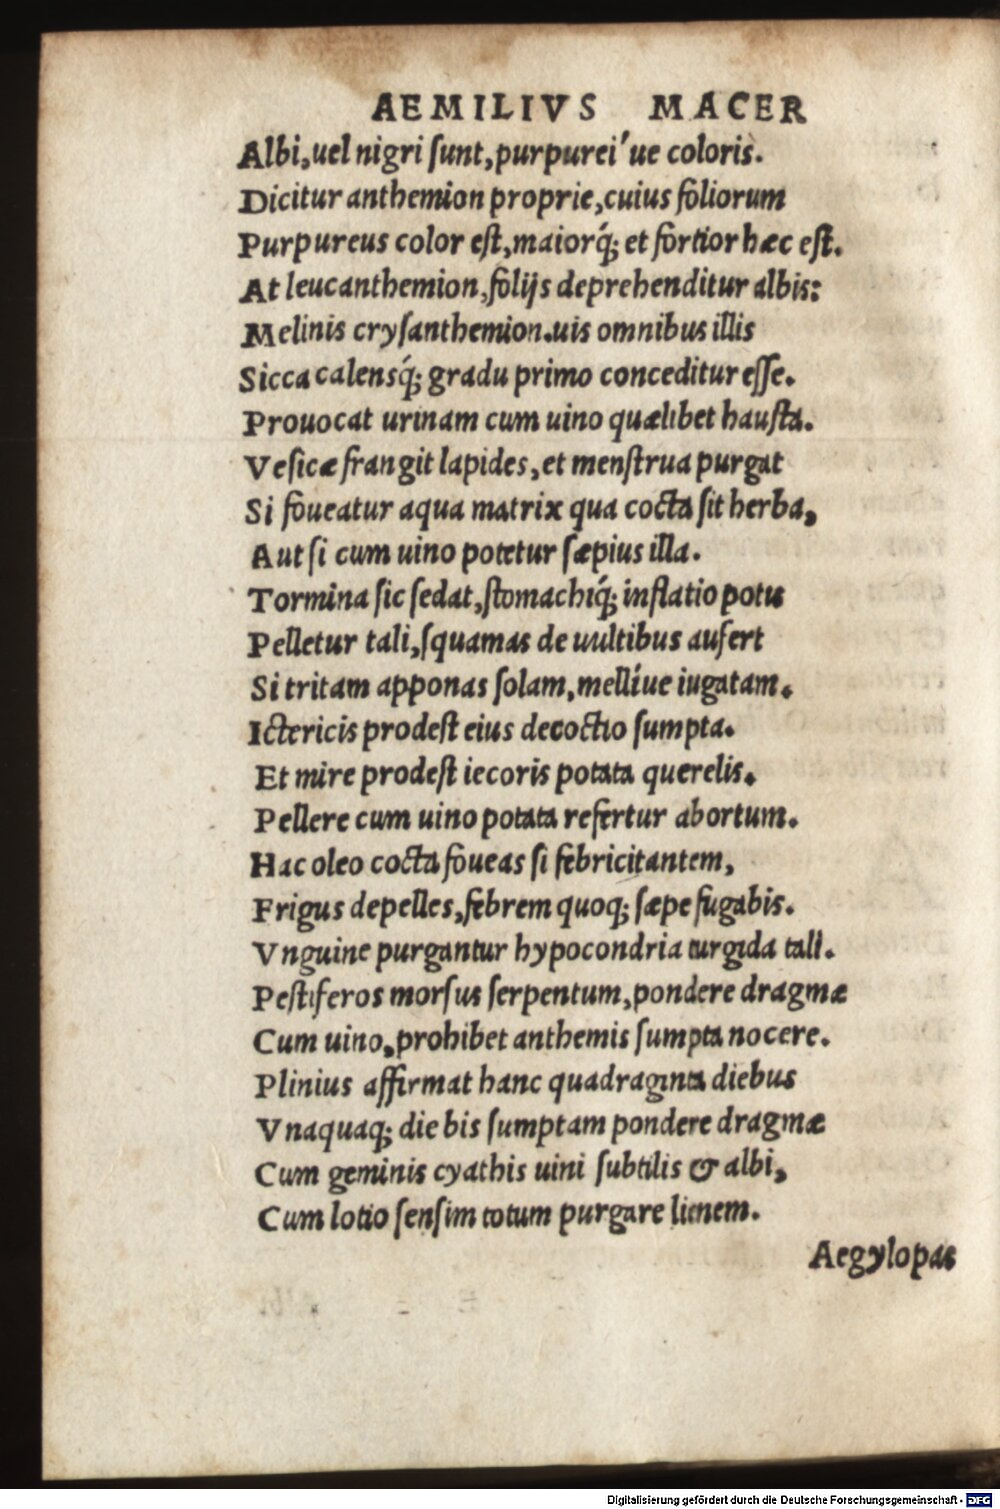 AEMILIVS MACER
Albi, uel nigri ſunt, purpurei'ue coloris.
Dicitur anthemion proprie, cuius foliorum
Purpureus color eſt, maiorq́; et fortior hæc eſt.
At leucanthemion, folijs deprehenditur albis:
Melinis cryſanthemion. uis omnibus illis
Sicca calensq́; gradu primo conceditur eſſe.
Prouocat urinam cum uino quælibet hauſta.
Veſicæ frangit lapides, et menſtrua purgat
Si foueatur aqua matrix qua cocta ſit herba,
Aut ſi cum uino potetur ſæpius illa.
Tormina ſic ſedat, ſtomachiq́; inflatio potu
Pelletur tali, ſquamas de uultibus aufert
Si tritam apponas ſolam, mellíue iugatam.
Ictericis prodeſt eius decoctio ſumpta.
Et mire prodeſt iecoris potata querelis.
Pellere cum uino potata refertur abortum.
Hac oleo cocta foueas ſi febricitantem,
Frigus depelles, febrem quoq; ſæpe fugabis.
Vnguine purgantur hypocondria turgida tali.
Peſtiferos morſus ſerpentum, pondere dragmæ
Cum uino, prohibet anthemis ſumpta nocere.
Plinius affirmat hanc quadraginta diebus
Vnaquaq; die bis ſumptam pondere dragmæ
Cum geminis cyathis uini ſubtilis & albi,
Cum lotio ſenſim totum purgare lienem.
Aegylopas
Digitalisierung gefördert durch die Deutsche Forschungsgemeinschaft - DFG